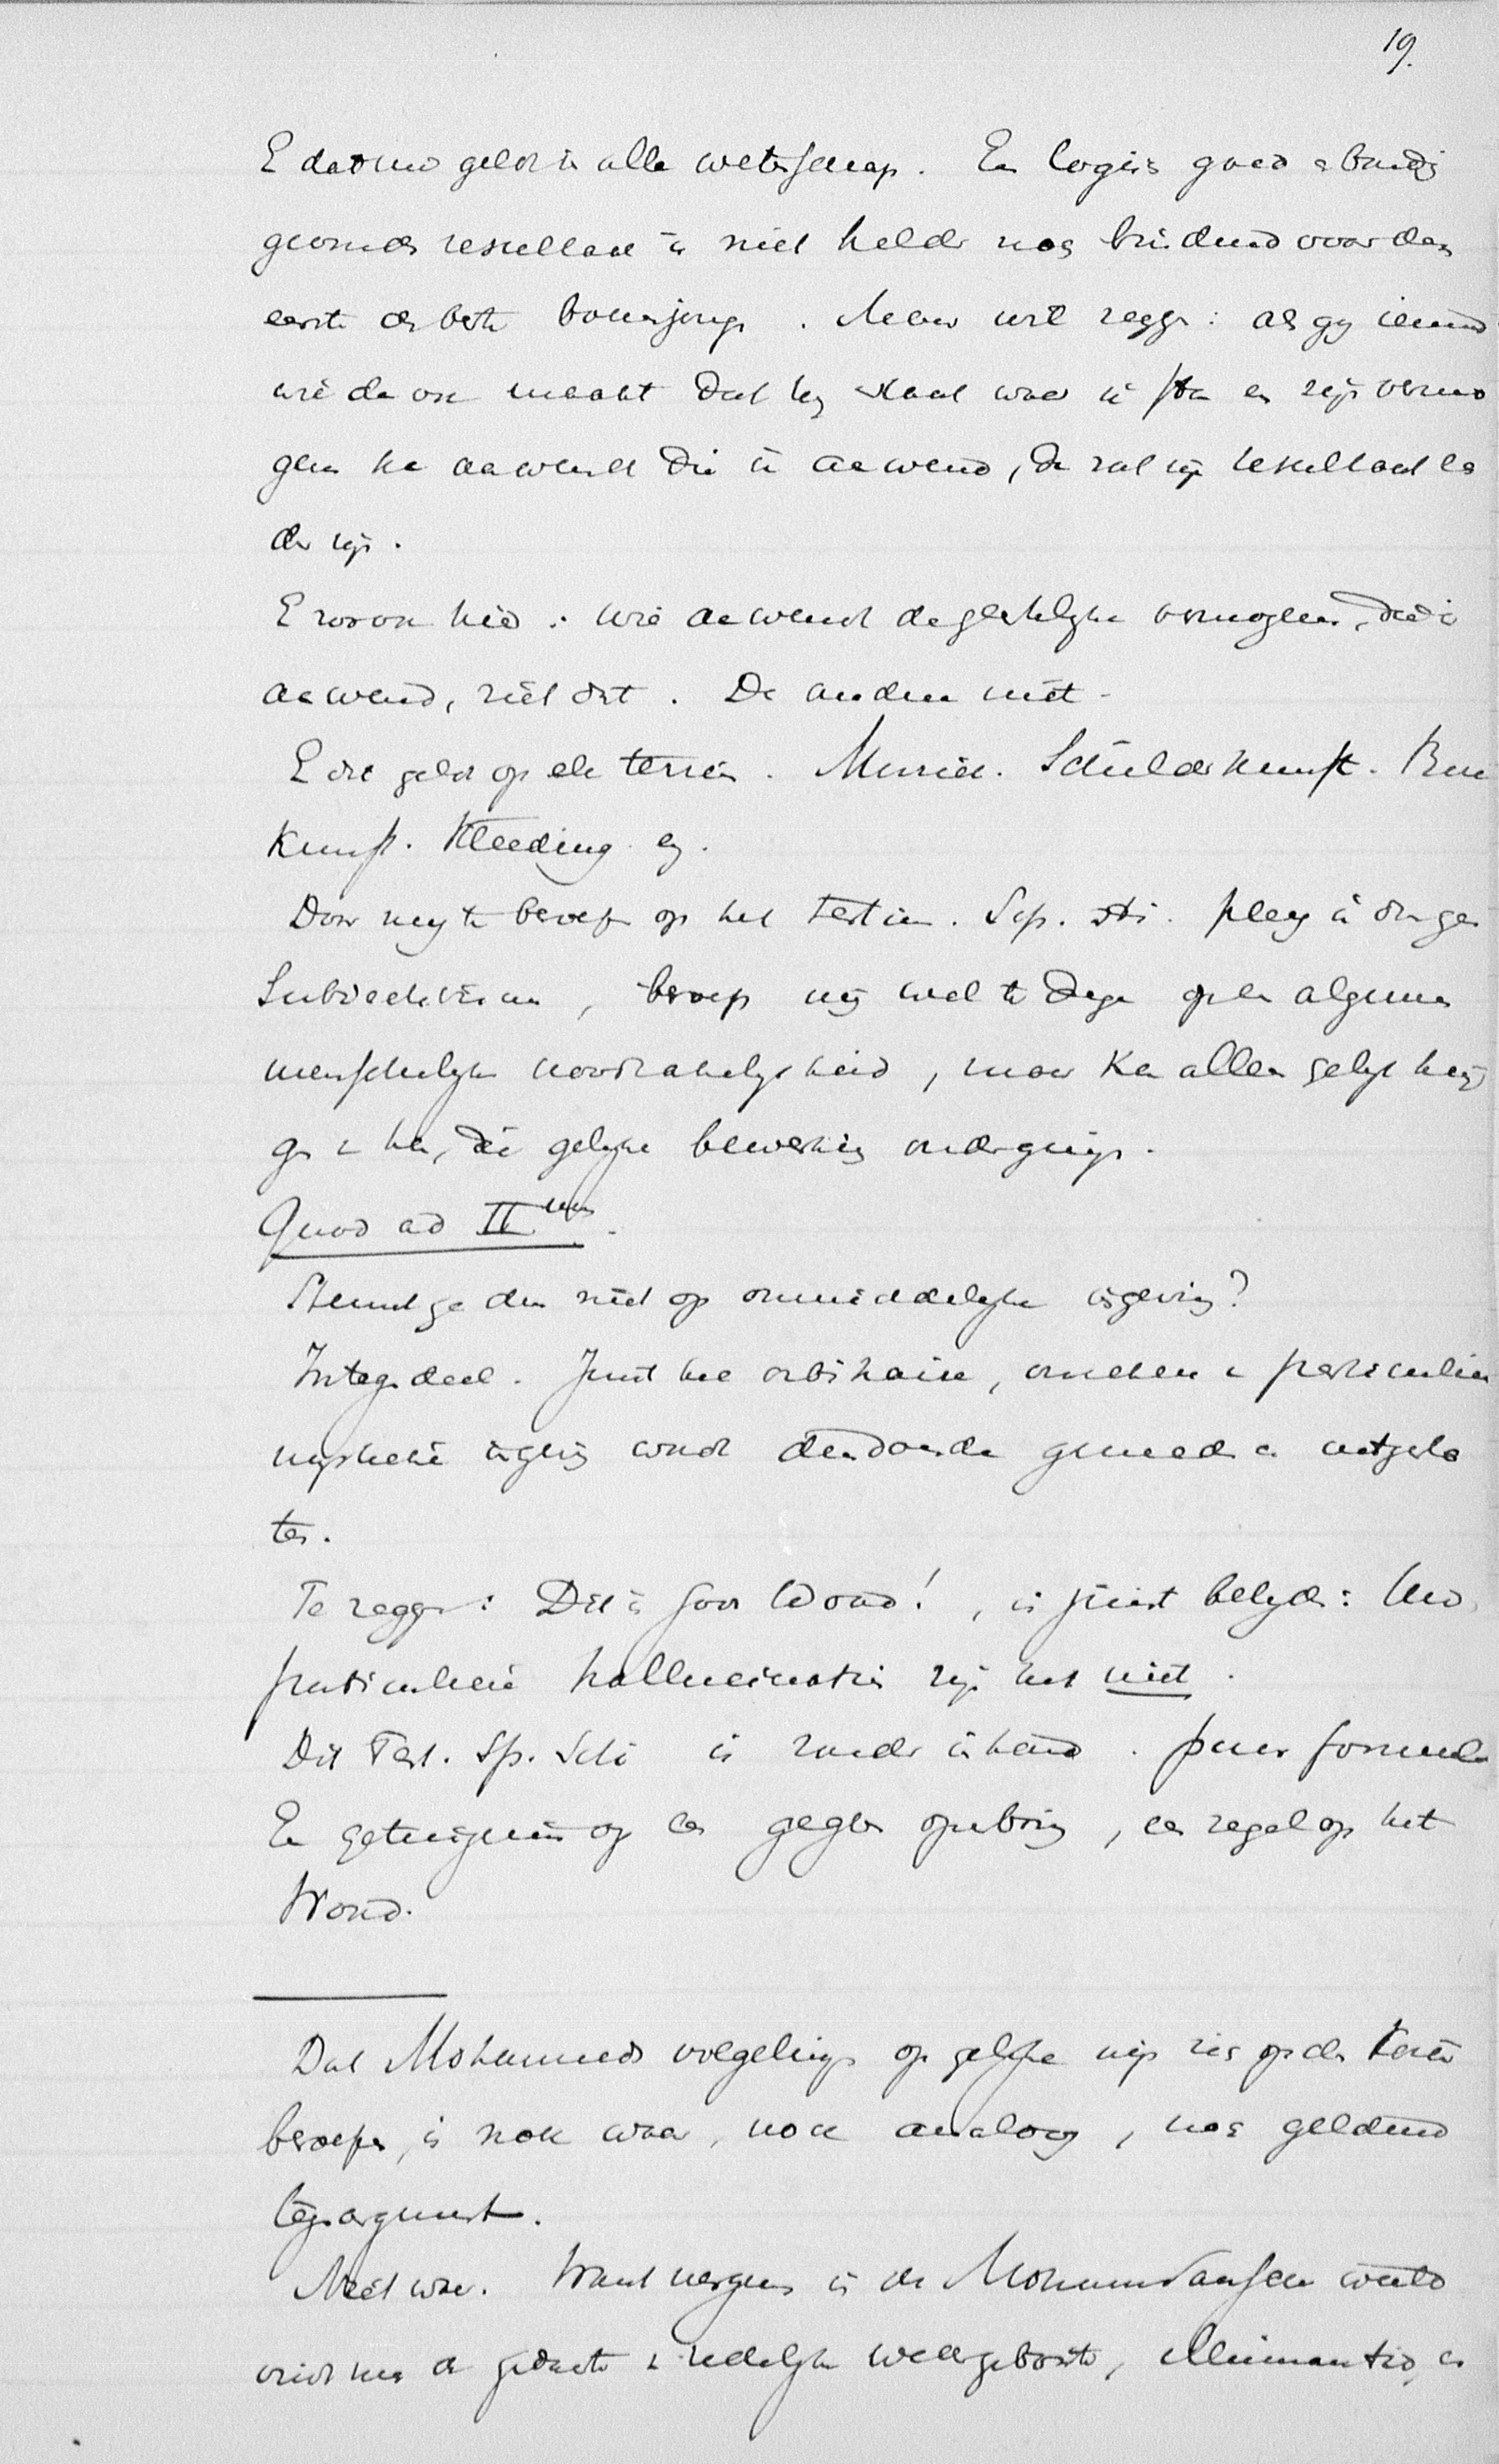 19.
E dat nu geldt in alle wetenschap. Een logis goed e bondig
gevonden resultaat is niet helder noch bindend voor den
eerste de beste boerenjongen. Maar wil zeggen: als gij iemand
wie dan ook maakt dat hij staat waar ik sta en zijn vermo
gen he aanwendt die ik aanwend, dan zal zijn resultaat
der zijn.
E zoo ook hier: wie aanwendt de geestelijke vermogens, die ik
aanwend, ziet dat. De andere niet.
E dit geldt op elk terrein. Muziek. Schilderkunst. Bouw
kunst. Kleeding
Door mij te beroepen op het Testim. Sp. Sti. pleeg ik dus geen
Subjectivisme, beroep mij wel te dege op een algemeen
menschelijke noodzakelijkheid, maar kan alleen gelijk krij
gen v hen, die gelijke bewerking ondergingen.
Quod ad II um.
Steunt ge dan niet op onmiddelijke ingeving?
Integendeel. Juist het arbitraire, and particuliere
mystieke ingeving wordt daardoor gemeden en uitgeslo
ten.
Te zeggen: Dit is Gods Woord!, is juist belijden: Uw
particuliere hallucinatie zijn het niet.
Dit Test. Sp. Scti is zonder inhoud. puur formeel
Een getuigenis op een gegeven openbaring, een zegel op het
Woord.
Dat Mohammeds volgelingen op gelijke wijs zich op den Koran
beroepen, is noch waar, noch analoog, noch geldend
tegenargument.
Niet waar. Want nergens in de Mohammedaansche wereld
vindt men de gedachte v zedelijke wedergeboorte, illuminatio, en